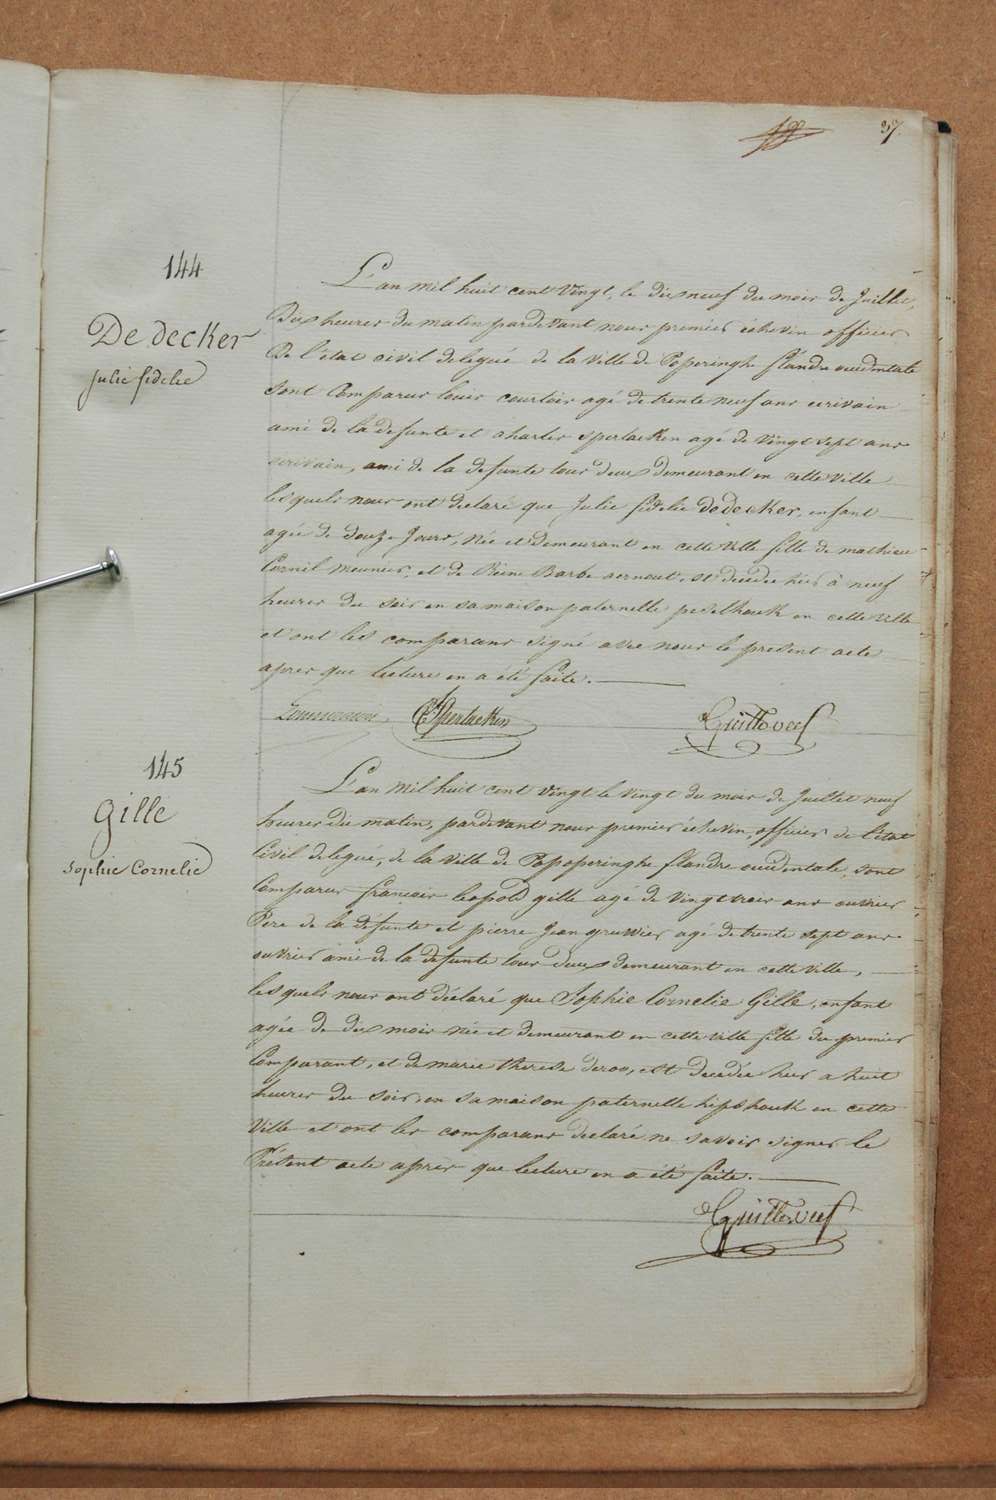 37.
144
De decker
julie fidelie
L'an mil huit cent vingt, le dix neuf du mois de Juillet,
Dix heures du matin pardevant nous premier échevin officier
De l'état civil delégué de la ville de Poperinghe flandre occidentale
sont Comparus louis courtois agé de trente neuf ans ecrivain
ami de la defunte et charles sperlaeken agé de vingt sept ans
ecrivain, ami de la defunte tous deux demeurant en cette ville
lesquels nous ont declaré que Julie fidelie dedecker, enfant
agée de douze Jours, née et demeurant en cette ville fille de mathieu
Cornil meunier, et de Reine Barbe aernout, est decedée hier à neuf
heures du soir en sa maison paternelle peselhoek en cette ville
et ont les comparans signé avec nous le present acte
apres que lecture en a été faite.
C Sperlaeken
145
gille
sophie Cornelie
L'an mil huit cent vingt le vingt du mois de Juillet neuf
heures du matin, pardevant nous premier échevin, officier de l'état
Civil delegué, de la ville de Popoperinghe flandre occidentale, sont
Comparus françois leopold gille agé de vingt trois ans ouvrier
Père de la defunte et pierre Jean gruwier agé de trente sept ans
ouvrier ami de la defunte tous deux demeurant en cette ville,
lesquels nous ont déclaré que Sophie Cornelia Gille, enfant
agée de dix mois née et demeurant en cette ville fille du premier
Comparant, et de marie therese deroo, est decedée hier a huit
heures du soir en sa maison paternelle hipshoek en cette
Ville et ont les comparans declaré ne savoir signer le
Présent acte après que lecture en a été faite.